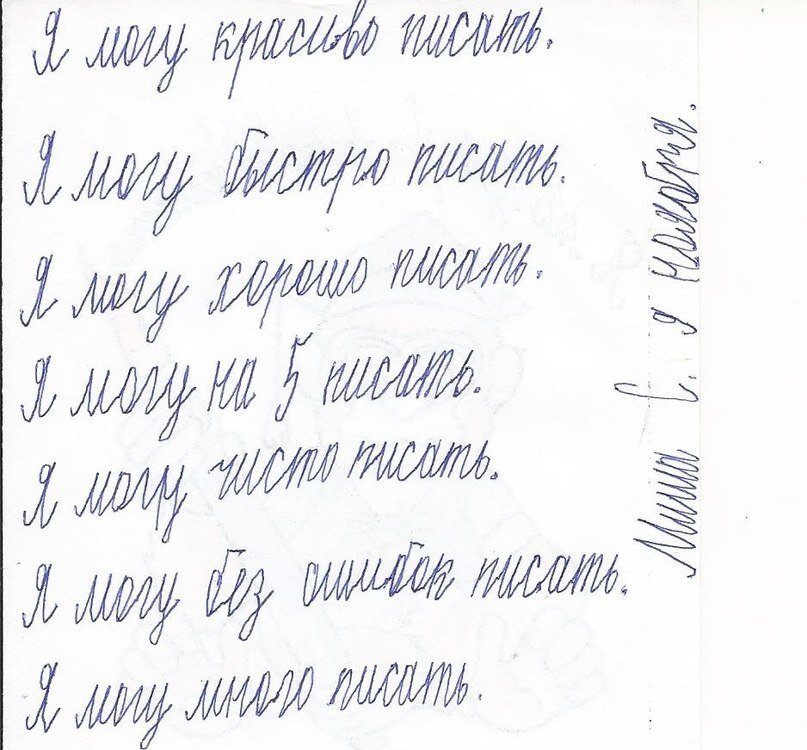 Я могу красиво писать.
Я могу быстро писать.
Я могу хорошо писать.
Я могу на 5 писать.
Я могу чисто писать.
Я могу без ошибок писать.
Я могу много писать.
Миша С. я ноября.